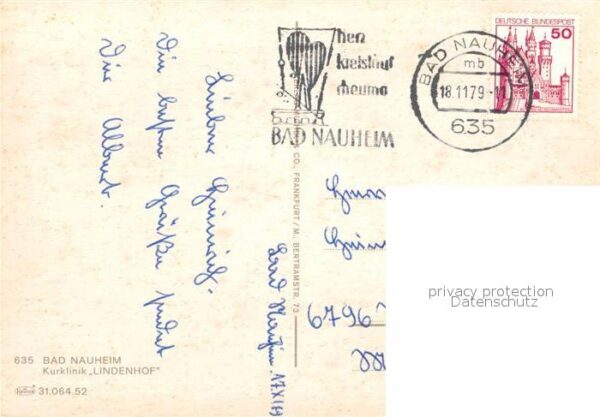 Lieber Heinrich.
Die besten Grüße sendet
Dir Albert.
Bad Nauheim 17.XI.79
635 BAD NAUHEIM
Kurklinik „LINDENHOF"
31.064.52
CO., FRANKFURT/M., BERTRAMSTR. 73
herz
kreislauf
rheuma
BAD NAUHEIM
BAD NAUHEIM
mb
18.11.79
635
DEUTSCHE BUNDESPOST
50
Herrn
6796
privacy protection
Datenschutz